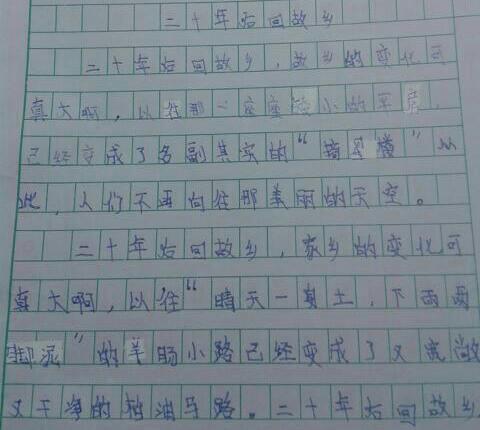 二十年后回故乡
二十年后回故乡，故乡的变化可
真大啊，以往那一座座矮小的平房，
已经变成了名副其实的“摘星楼”以
此，人们不再向往那美丽的天空。
二十年后回故乡，家乡的变化可
真大啊，以往“晴天一身土，下雨两
脚泥”的羊肠小路已经变成了又宽敞
又干净的柏油马路。二十年后回故乡